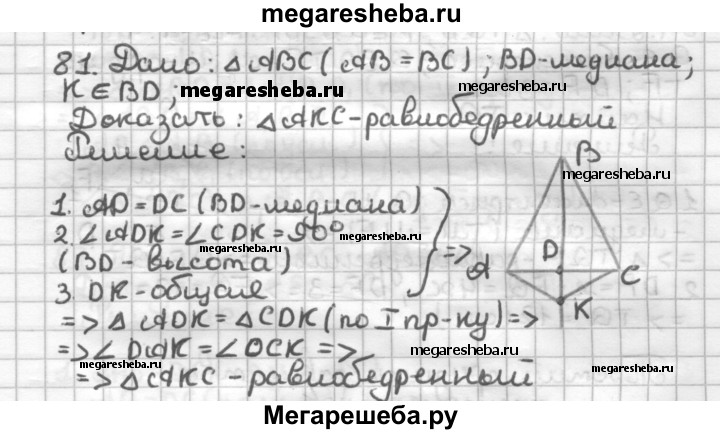 megaresheba.ru
81. Дано: △ABC (AB = BC); BD-медиана;
K ∈ BD; megaresheba.ru megaresheba.ru
Доказать: △AKC-равнобедренный
Решение:
B
megaresheba.ru
1. AD = DC (BD-медиана)
2. ∠ADK = ∠CDK = 90° megaresheba.ru
megaresheba.ru
(BD-высота) => A D C
3. DK-общие
K
=> △ADK = △CDK (по I пр-ку) =>
megaresheba.ru
=> ∠DAK = ∠DCK => megaresheba.ru
=> △AKC - равнобедренный
Мегарешеба.ру